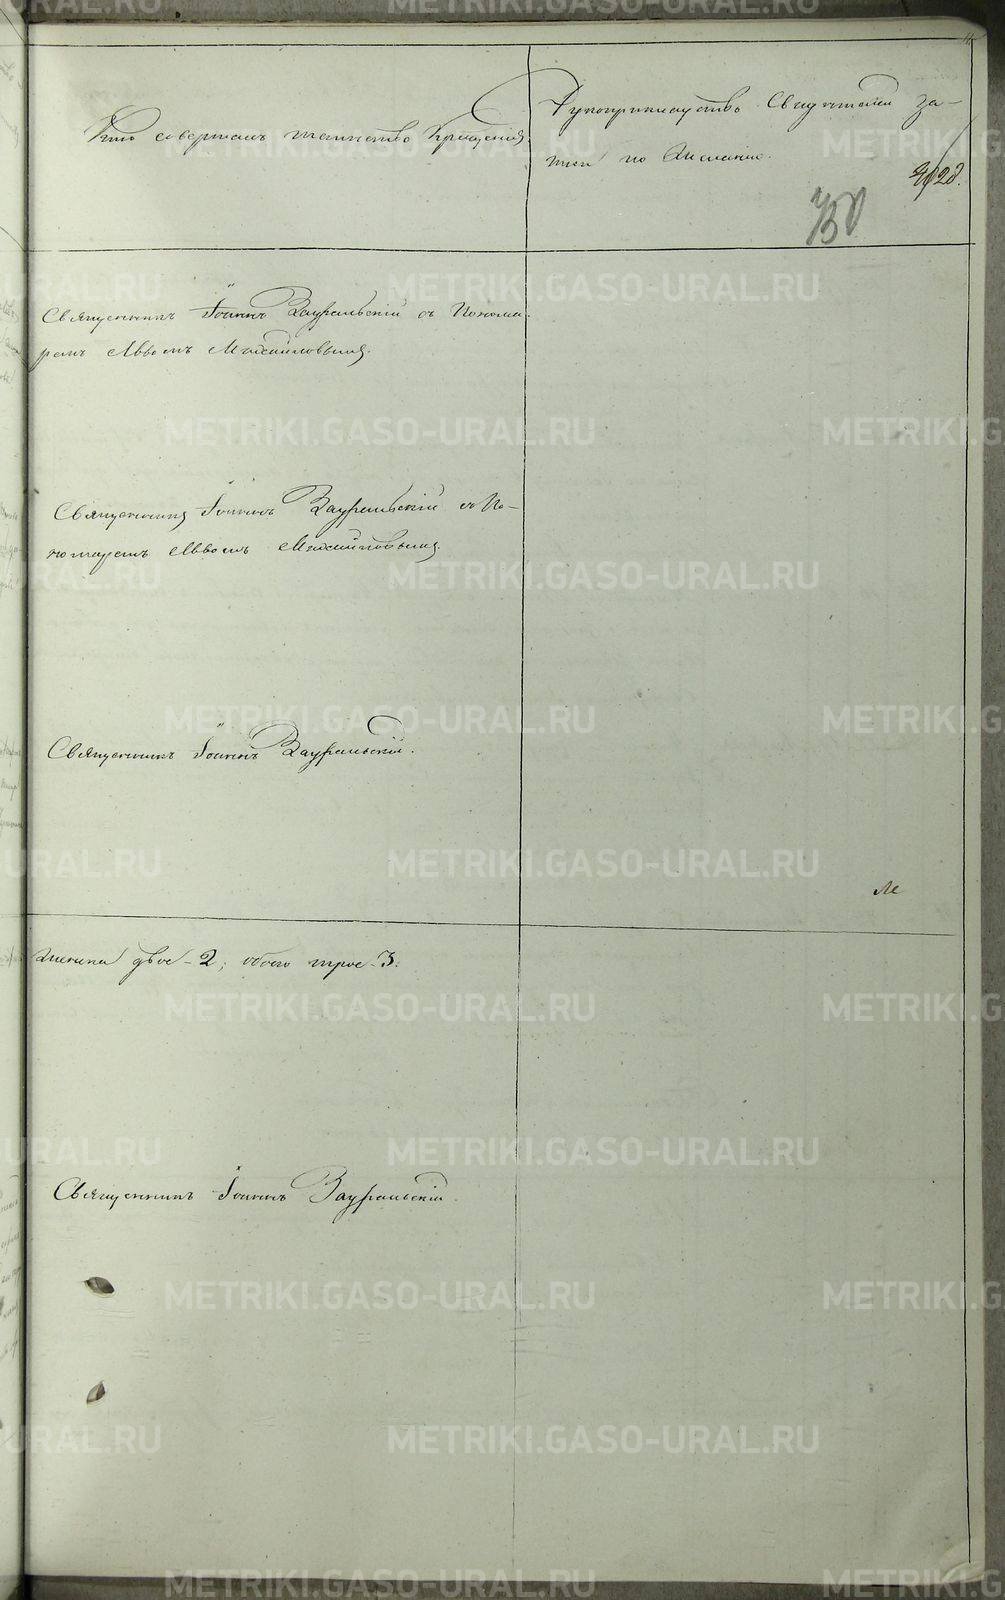 Кто совершалъ таинство Крещенія
Рукоприкладство Свидѣтелей за-
писи по желанію.
750
Священникъ Іоаннъ Зауральскій съ Понома-
ремъ Львомъ Михайловымъ.
Священникъ Іоаннъ Зауральскій съ По-
номаремъ Львомъ Михайловымъ.
Священникъ Іоаннъ Зауральскій.
женска двое - 2, обоего трое - 3.
Священникъ Іоаннъ Зауральскій.
METRIKI.GASO-URAL.RU